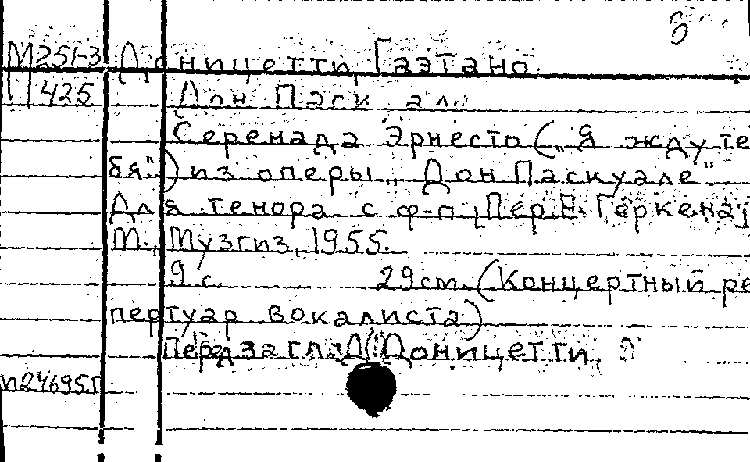 М251-3 Доницетти, Гаэтано.
425 Дон Паскуале.
Серенада Эрнесто („Я жду те
бя") из оперы „Дон Паскуале"
Для тенора с ф-п, Пер. Е. Геркена,
М., Музгиз, 1955.
9 с. 29 см. (Концертный ре
пертуар вокалиста)
Перед загл.: Доницетти
п24695Г